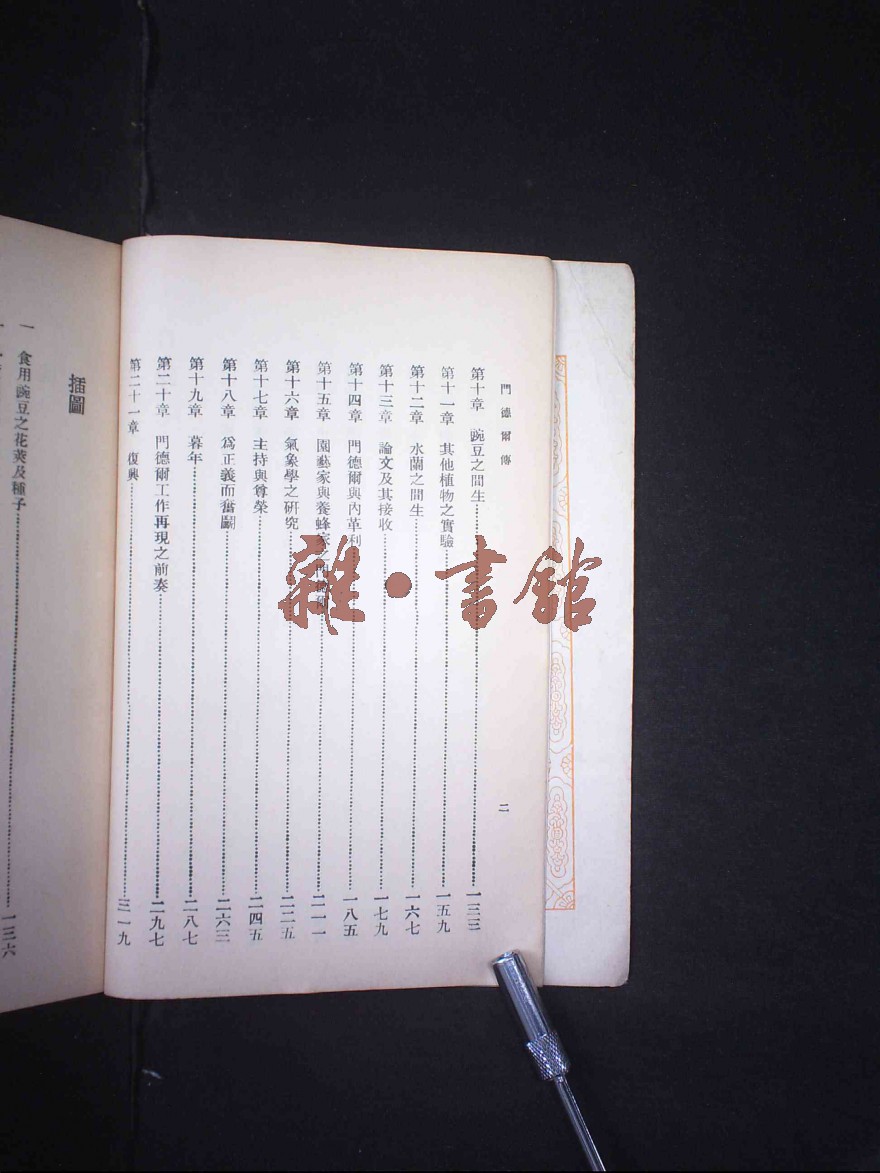 門德爾傳
二
第十章 豌豆之間生 一三三
第十一章 其他植物之實驗 一五九
第十二章 水蘭之間生 一六七
第十三章 論文及其接收 一七九
第十四章 門德爾與內革利 一八五
第十五章 園藝家與養蜂家之門德爾 二一一
第十六章 氣象學之研究 二二五
第十七章 主持與尊榮 二四五
第十八章 爲正義而奮鬬 二六三
第十九章 暮年 二八七
第二十章 門德爾工作再現之前奏 二九七
第二十一章 復興 三一九
插圖
一 食用豌豆之花莢及種子 一三六
雜·書館